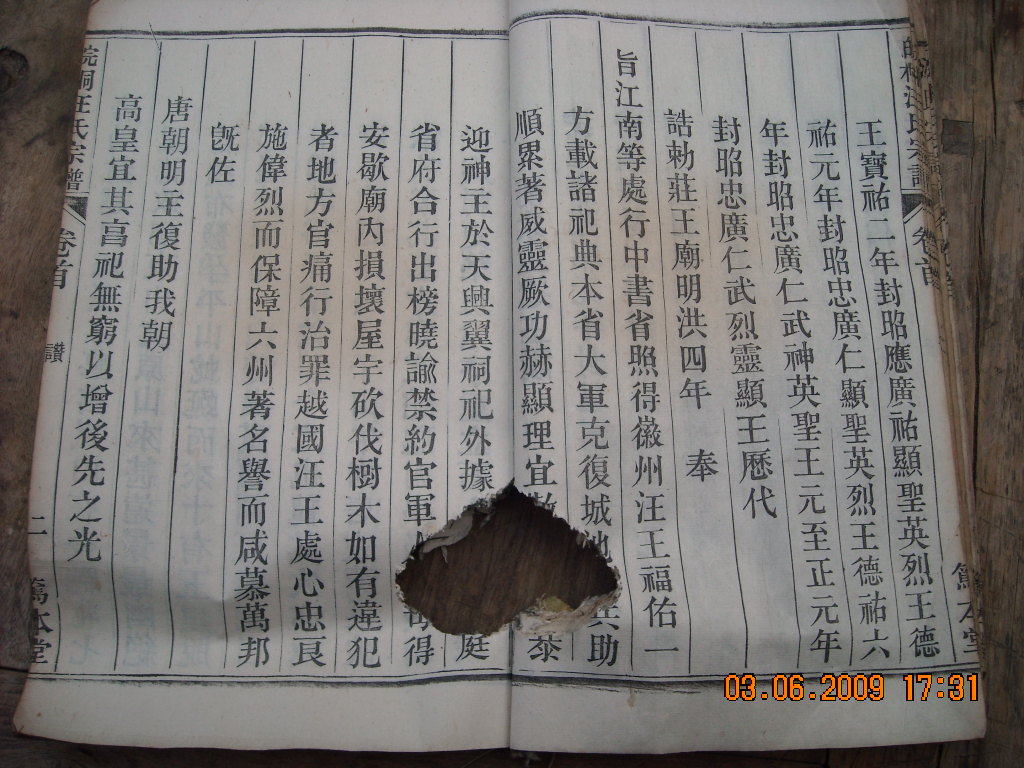 卷首
本堂
王寶祐二年封昭應廣祐顯聖英烈王德
祐元年封昭忠廣仁顯聖英烈王德祐六
年封昭忠廣仁武神英聖王元至正元年
封昭忠廣仁武烈靈顯王歷代
誥勅莊王廟明洪四年 奉
旨江南等處行中書省照得徽州汪王福佑一
方載諸祀典本省大軍克復城 兵助
順累著威靈厥功赫顯理宜 泰
迎神王於天興翼祠祀外據 庭
省府合行出榜曉諭禁約官軍 得
安歇廟內損壞屋宇砍伐樹木如有違犯
者地方官痛行治罪越國汪王處心忠艮
施偉烈而保障六州著名譽而咸慕萬邦
旣佐
唐朝明王復助我朝
高皇宜其亯祀無窮以增後先之光
皖桐汪氏宗譜 卷首 讚 二 篤本堂
03.06.2009 17:31